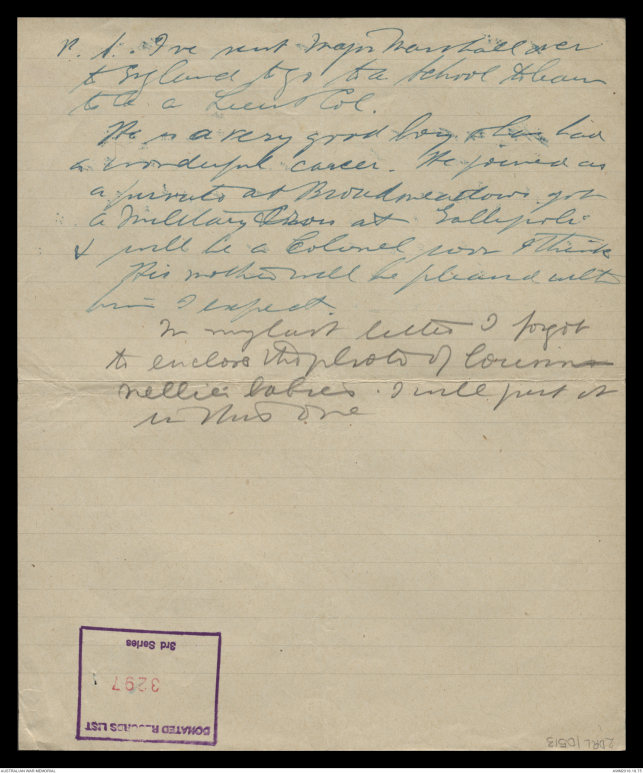 P.S. I've sent Major Marshall over
to England to go to a School to learn
to be a Lieut Col.
He is a very good boy & has had
a wonderful career. He joined as
a private at Broadmeadows, got
a Military Cross at Gallipoli
& will be a Colonel soon I think
His mother will be pleased with
him I expect.
In my last letter I forgot
to enclose the photo of Cousin
Nellies babies. I will put it
in this one
DONATED RECORDS LIST
3297
3rd Series
2DRL/0513
AUSTRALIAN WAR MEMORIAL